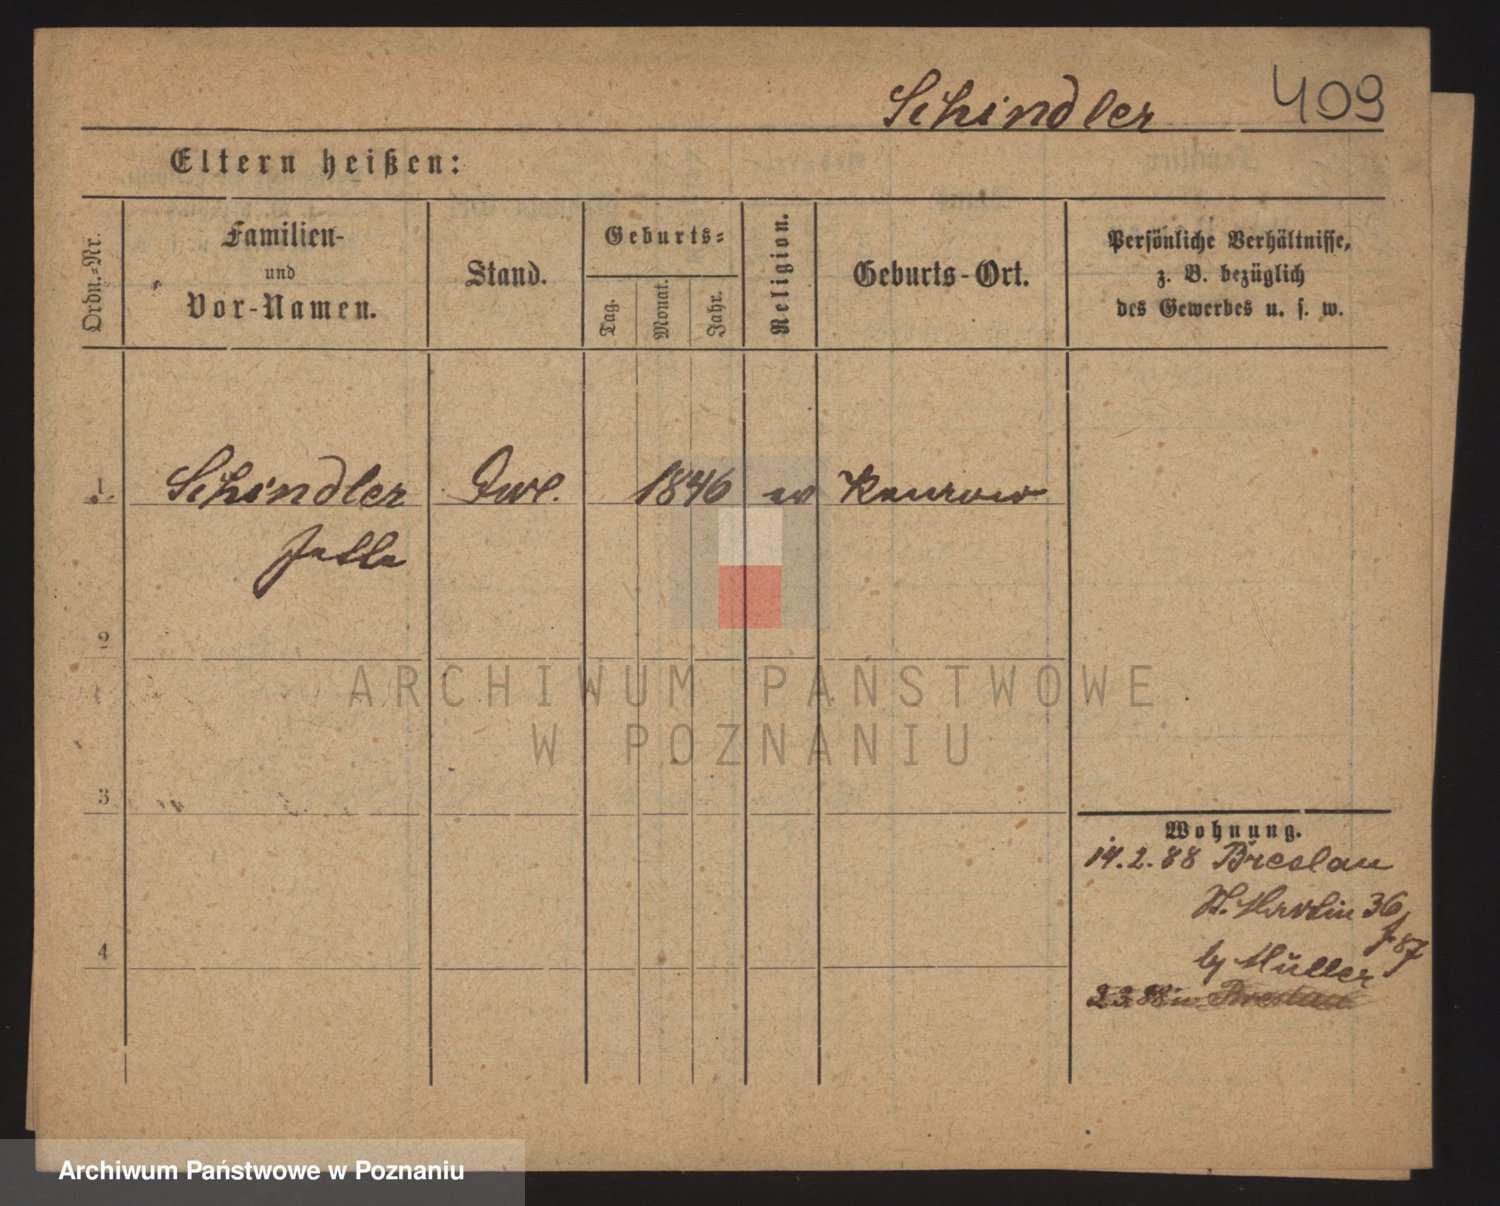 Schindler 409
Eltern heißen:
Ordn.-Nr.
Familien-
und
Vor-Namen.
Stand.
Geburts-
Tag.
Monat.
Jahr.
Religion.
Geburts-Ort.
Persönliche Verhältnisse,
z. B. bezüglich
des Gewerbes u. s. w.
1 Schindler 1846
2
3
4
Wohnung.
14.2.88 Breslau
St. Martin 36
87
by Müller
2.3.88 in Breslau
ARCHIWUM PAŃSTWOWE
W POZNANIU
Archiwum Państwowe w Poznaniu